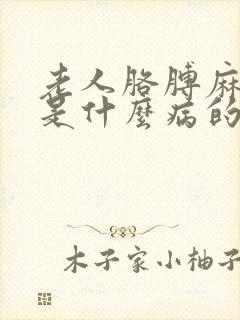 老人胳膊麻
是什麼病的
木子家小柚子